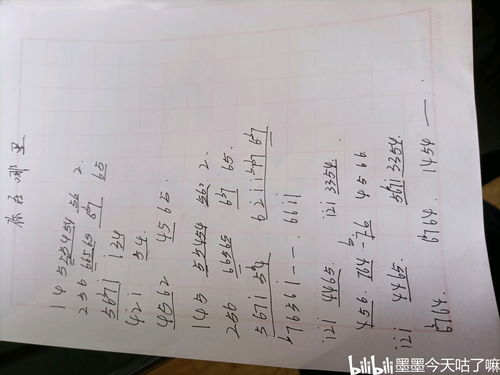 哪里
145 555454 56 2.
256 66565 67 65
5671 134
421 54.
4512 4565.
145 55454 56 2.
256 66565 67 65.
5671 54 6211 67
676561-- 6611
i2i 4465. i2i 3354.
456.764-76 4566
i2i 4465. 567i 3354.
6764. 6764. 1454 —.
bilibili 墨墨今天咕了嘛